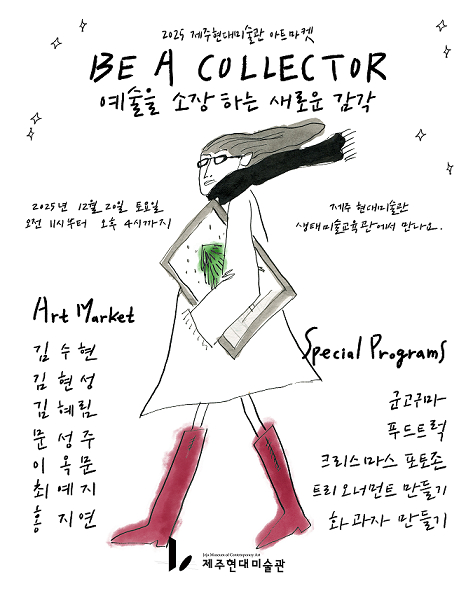 2025 제주현대미술관 아트마켓
BE A COLLECTOR
예술을 소장하는 새로운 감각
2025년 12월 20일 토요일
오전 11시부터 오후 4시까지
제주 현대미술관
생태미술교육관에서 만나요.
Art Market
김수현
김현성
김혜림
문성주
이옥문
최예지
홍지연
Special Programs
군고구마
푸드트럭
크리스마스 포토존
트리오너먼트 만들기
화과자 만들기
Jeju Museum of Contemporary Art
제주현대미술관